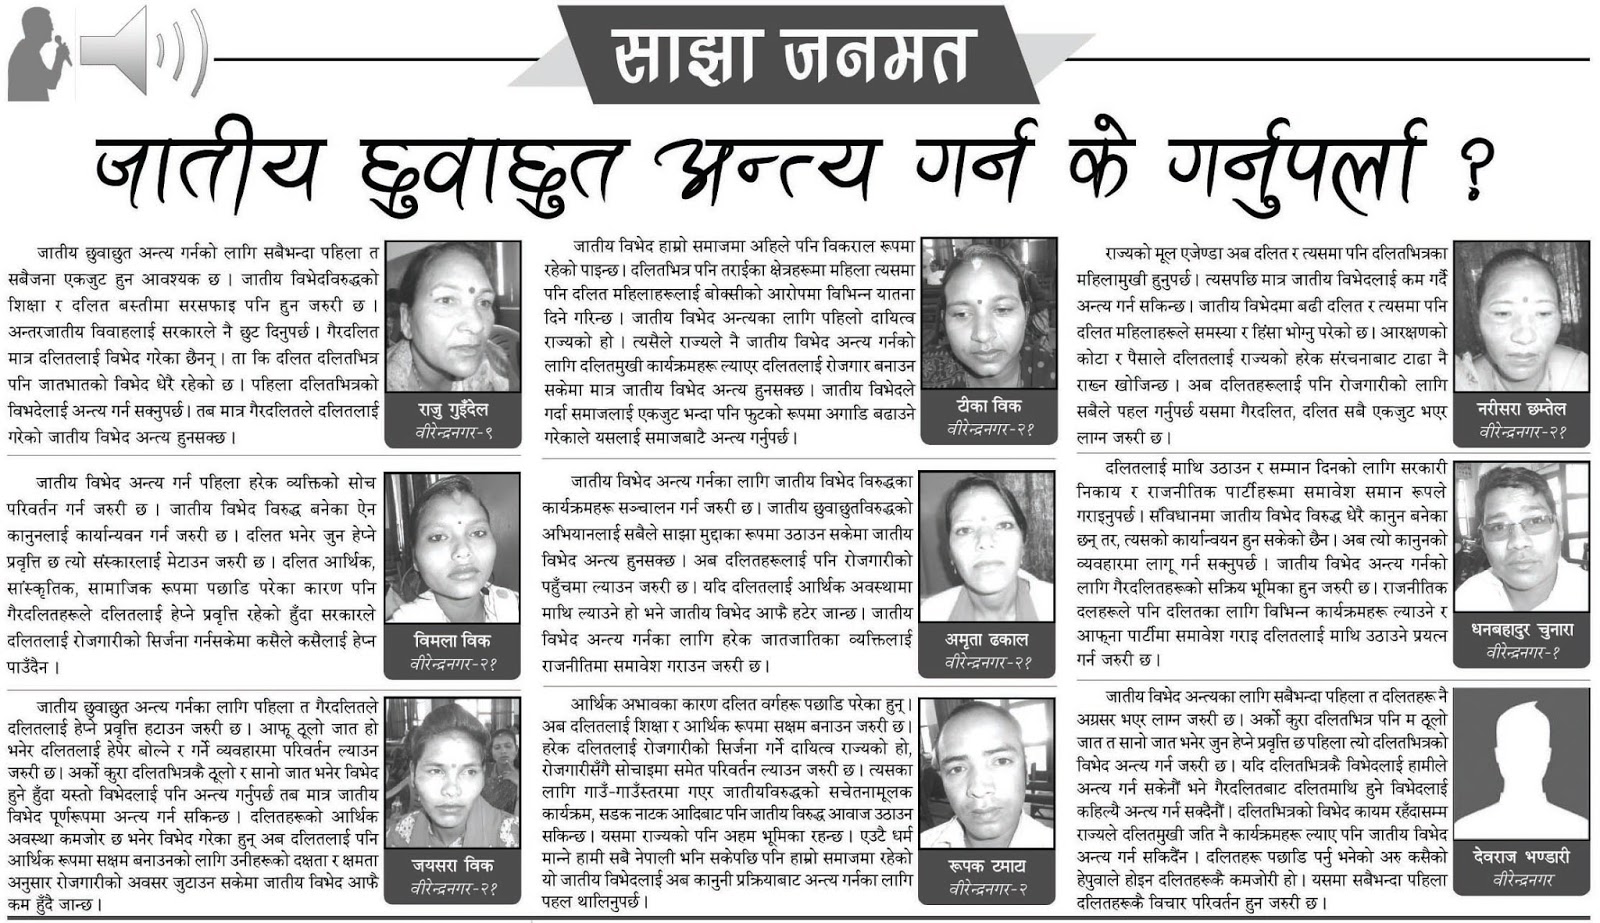 साझा जनमत
जातीय छुवाछुत अन्त्य गर्न के गर्नुपर्ला ?
जातीय छुवाछुत अन्त्य गर्नको लागि सबैभन्दा पहिला त
सबैजना एकजुट हुन आवश्यक छ । जातीय विभेदविरुद्धको
शिक्षा र दलित बस्तीमा सरसफाइ पनि हुन जरुरी छ ।
अन्तरजातीय विवाहलाई सरकारले नै छुट दिनुपर्छ । गैरदलित
मात्र दलितलाई विभेद गरेका छैनन् । ता कि दलित दलितभित्र
पनि जातभातको विभेद धेरै रहेको छ । पहिला दलितभित्रको
विभदेलाई अन्त्य गर्न सक्नुपर्छ । तब मात्र गैरदलितले दलितलाई
गरेको जातीय विभेद अन्त्य हुनसक्छ ।
राजु गुइँदेल
वीरेन्द्रनगर-९
जातीय विभेद अन्त्य गर्न पहिला हरेक व्यक्तिको सोच
परिवर्तन गर्न जरुरी छ । जातीय विभेद विरुद्ध बनेका ऐन
कानुनलाई कार्यान्यवन गर्न जरुरी छ । दलित भनेर जुन हेप्ने
प्रवृत्ति छ त्यो संस्कारलाई मेटाउन जरुरी छ । दलित आर्थिक,
सांस्कृतिक, सामाजिक रूपमा पछाडि परेका कारण पनि
गैरदलितहरूले दलितलाई हेप्ने प्रवृत्ति रहेको हुँदा सरकारले
दलितलाई रोजगारीको सिर्जना गर्नसकेमा कसैले कसैलाई हेप्न
पाउँदैन ।
विमला विक
वीरेन्द्रनगर-२१
जातीय छुवाछुत अन्त्य गर्नका लागि पहिला त गैरदलितले
दलितलाई हेप्ने प्रवृत्ति हटाउन जरुरी छ । आफू ठूलो जात हो
भनेर दलितलाई हेपेर बोल्ने र गर्ने व्यवहारमा परिवर्तन ल्याउन
जरुरी छ । अर्को कुरा दलितभित्रकै ठूलो र सानो जात भनेर विभेद
हुने हुँदा यस्तो विभेदलाई पनि अन्त्य गर्नुपर्छ तब मात्र जातीय
विभेद पूर्णरूपमा अन्त्य गर्न सकिन्छ । दलितहरूको आर्थिक
अवस्था कमजोर छ भनेर विभेद गरेका हुन् अब दलितलाई पनि
आर्थिक रूपमा सक्षम बनाउनको लागि उनीहरूको दक्षता र क्षमता
अनुसार रोजगारीको अवसर जुटाउन सकेमा जातीय विभेद आफै
कम हुँदै जान्छ ।
जयसरा विक
वीरेन्द्रनगर-२१
जातीय विभेद हाम्रो समाजमा अहिले पनि विकराल रूपमा
रहेको पाइन्छ । दलितभित्र पनि तराईका क्षेत्रहरूमा महिला त्यसमा
पनि दलित महिलाहरूलाई बोक्सीको आरोपमा विभिन्न यातना
दिने गरिन्छ । जातीय विभेद अन्त्यका लागि पहिलो दायित्व
राज्यको हो । त्यसैले राज्यले नै जातीय विभेद अन्त्य गर्नको
लागि दलितमुखी कार्यक्रमहरू ल्याएर दलितलाई रोजगार बनाउन
सकेमा मात्र जातीय विभेद अन्त्य हुनसक्छ । जातीय विभेदले
गर्दा समाजलाई एकजुट भन्दा पनि फुटको रूपमा अगाडि बढाउने
गरेकाले यसलाई समाजबाटै अन्त्य गर्नुपर्छ ।
टीका विक
वीरेन्द्रनगर-२१
जातीय विभेद अन्त्य गर्नका लागि जातीय विभेद विरुद्धका
कार्यक्रमहरू सञ्चालन गर्न जरुरी छ । जातीय छुवाछुतविरुद्धको
अभियानलाई सबैले साझा मुद्दाका रूपमा उठाउन सकेमा जातीय
विभेद अन्त्य हुनसक्छ । अब दलितहरूलाई पनि रोजगारीको
पहुँचमा ल्याउन जरुरी छ । यदि दलितलाई आर्थिक अवस्थामा
माथि ल्याउने हो भने जातीय विभेद आफै हटेर जान्छ । जातीय
विभेद अन्त्य गर्नका लागि हरेक जातजातिका व्यक्तिलाई
राजनीतिमा समावेश गराउन जरुरी छ ।
अमृता ढकाल
वीरेन्द्रनगर-२१
आर्थिक अभावका कारण दलित वर्गहरू पछाडि परेका हुन् ।
अब दलितलाई शिक्षा र आर्थिक रूपमा सक्षम बनाउन जरुरी छ ।
हरेक दलितलाई रोजगारीको सिर्जना गर्ने दायित्व राज्यको हो,
रोजगारीसँगै सोचाइमा समेत परिवर्तन ल्याउन जरुरी छ । त्यसका
लागि गाउँ-गाउँस्तरमा गएर जातीयविरुद्धको सचेतनामूलक
कार्यक्रम, सडक नाटक आदिबाट पनि जातीय विरुद्ध आवाज उठाउन
सकिन्छ । यसमा राज्यको पनि अहम भूमिका रहन्छ । एउटै धर्म
मान्ने हामी सबै नेपाली भनि सकेपछि पनि हाम्रो समाजमा रहेको
यो जातीय विभेदलाई अब कानुनी प्रक्रियाबाट अन्त्य गर्नका लागि
पहल थालिनुपर्छ ।
रूपक टमाटा
वीरेन्द्रनगर-२
राज्यको मूल एजेण्डा अब दलित र त्यसमा पनि दलितभित्रका
महिलामुखी हुनुपर्छ । त्यसपछि मात्र जातीय विभेदलाई कम गर्दै
अन्त्य गर्न सकिन्छ । जातीय विभेदमा बढी दलित र त्यसमा पनि
दलित महिलाहरूले समस्या र हिंसा भोग्नु परेको छ । आरक्षणको
कोटा र पैसाले दलितलाई राज्यको हरेक संरचनाबाट टाढा नै
राख्न खोजिन्छ । अब दलितहरूलाई पनि रोजगारीको लागि
सबैले पहल गर्नुपर्छ यसमा गैरदलित, दलित सबै एकजुट भएर
लाग्न जरुरी छ ।
नरीसरा छम्तेल
वीरेन्द्रनगर-२१
दलितलाई माथि उठाउन र सम्मान दिनको लागि सरकारी
निकाय र राजनीतिक पार्टीहरूमा समावेश समान रूपले
गराइनुपर्छ । संविधानमा जातीय विभेद विरुद्ध धेरै कानुन बनेका
छन् तर, त्यसको कार्यान्वयन हुन सकेको छैन । अब त्यो कानुनको
व्यवहारमा लागू गर्न सक्नुपर्छ । जातीय विभेद अन्त्य गर्नको
लागि गैरदलितहरूको सक्रिय भूमिका हुन जरुरी छ । राजनीतिक
दलहरूले पनि दलितका लागि विभिन्न कार्यक्रमहरू ल्याउने र
आफ्ना पार्टीमा समावेश गराइ दलितलाई माथि उठाउने प्रयत्न
गर्न जरुरी छ ।
धनबहादुर चुनारा
वीरेन्द्रनगर-१
जातीय विभेद अन्त्यका लागि सबैभन्दा पहिला त दलितहरू नै
अग्रसर भएर लाग्न जरुरी छ । अर्को कुरा दलितभित्र पनि म ठूलो
जात त सानो जात भनेर जुन हेप्ने प्रवृत्ति छ पहिला त्यो दलितभित्रको
विभेद अन्त्य गर्न जरुरी छ । यदि दलितभित्रकै विभेदलाई हामीले
अन्त्य गर्न सकेनौं भने गैरदलितबाट दलितमाथि हुने विभेदलाई
कहिल्यै अन्त्य गर्न सक्दैनौं । दलितभित्रको विभेद कायम रहँदासम्म
राज्यले दलितमुखी जति नै कार्यक्रमहरू ल्याए पनि जातीय विभेद
अन्त्य गर्न सकिदैंन । दलितहरू पछाडि पर्नु भनेको अरु कसैको
हेपुवाले होइन दलितहरूकै कमजोरी हो । यसमा सबैभन्दा पहिला
दलितहरूकै विचार परिवर्तन हुन जरुरी छ ।
देवराज भण्डारी
वीरेन्द्रनगर